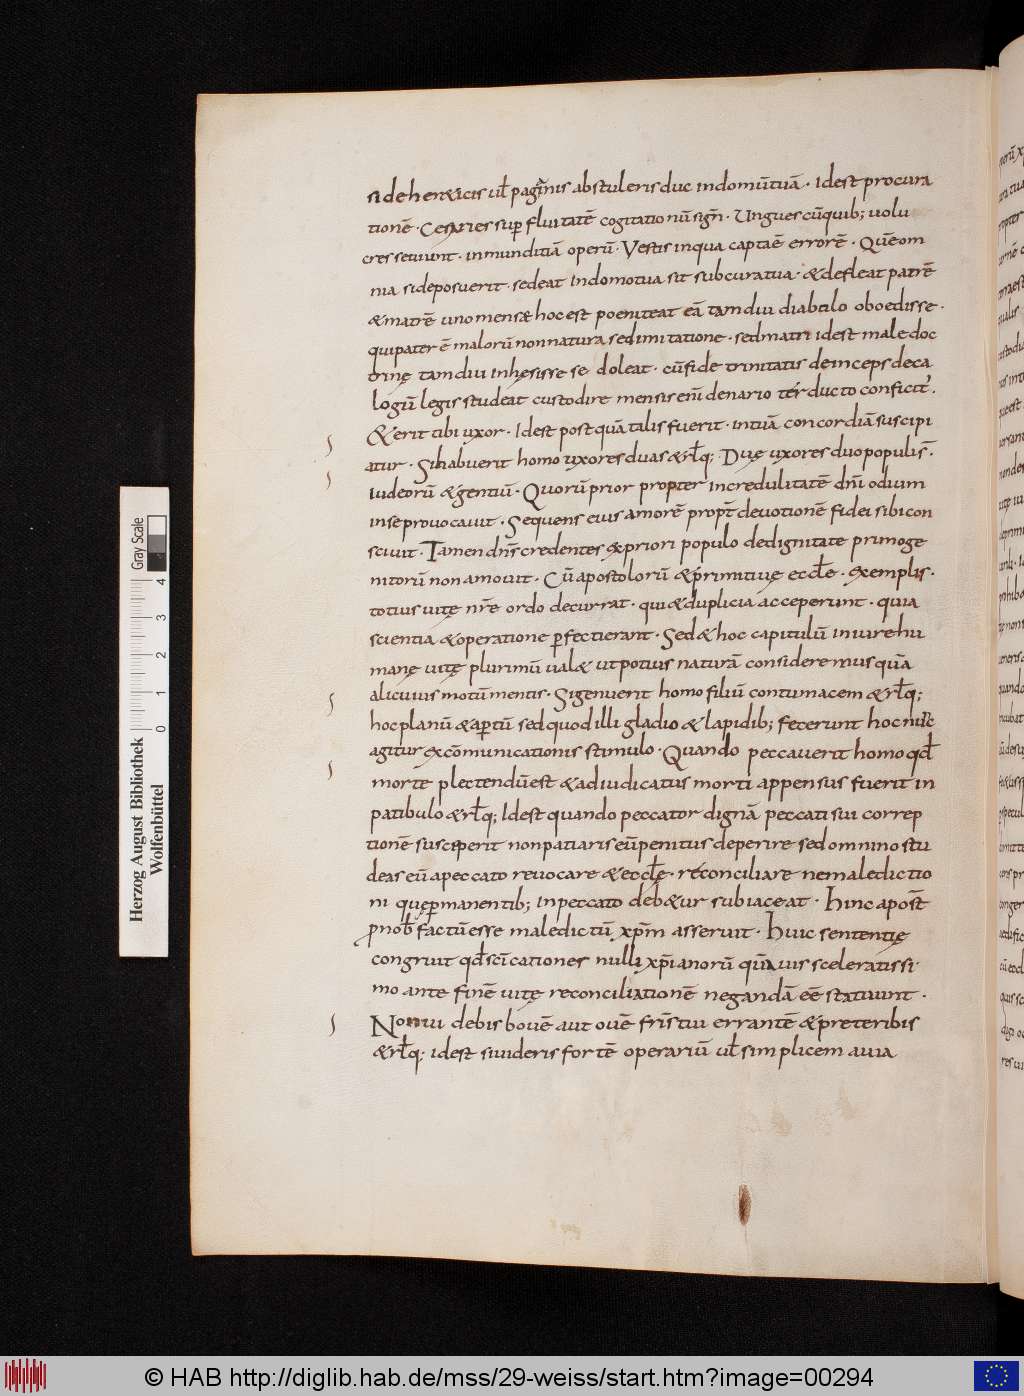 si de hereticis ul̄ pagānis abstuleris duc in domū tuā · Idest procura
tionē · Cesaries sup̄ fluitatē cogitationū sign̄ · Ungues cū quib; uolu
cres seuiunt · inmunditiā operū · Vestis in qua captiaē errorē · Quē om
nia si deposuerit · sedeat In domo tua sit sub cura tua · & defleat patrē
& matrē uno mense hoc est poeniteat eā tam diu diabulo oboedisse ·
qui pater ē malorū non natura sed imitatione · sed matri idest male doc
trinę tam diu inhęsisse se doleat · cū fide trinitatis deinceps deca
logū legis studeat custodire mensis enī denario ter ducto conficit᷒ ·
& erit tibi uxor · Idest post quā talis fuerit · in tuā concordiā suscipi
atur · Si habuerit homo uxores duas & rl̄q; Duę uxores duo populi s̄ ·
iudeorū & gentiū · Quorū prior propter incredulitatē dn̄i odium
in se prouocauit · Sequens eius amorē propt̄ deuotionē fidei sibi con
sciuit · Tamen dn̄s credentes ex priori populo dedignitate primoge
nitorū non amouit · Cū apostolorū & primitiuę eccl̄e · exemplis ·
totius uitę nr̄e ordo decurrat · qui & duplicia acceperunt · quia
scientia & operatione p̄fecti erant · Sed & hoc capitulū in iure hu
manę uitę plurimū ual& ut potius naturā consideremus quā
alicuius motū mentis · Si genuerit homo filiū contumacem & rl̄q;
hoc planū & ap̄tū sed quod illi gladio & lapidib; fecerunt hoc nūc
agitur excōmunicationis stimulo · Quando peccauerit homo qd̄
morte plectendū est & adiudicatus morti appensus fuerit in
patibulo & rl̄q; Idest quando peccator dignā peccati sui correp
tionē susceperit non patiaris eū penitus deperire sed omnino stu
deas eū a peccato reuocare & eccl̄ę reconciliare ne maledictio
ni quę p̄manentib; in peccato deb&ur subiaceat · Hinc apost̄
p̄nob̄ factū esse maledictū xp̄m asseruit · Huic sententię
congruit qd̄ sc̄i cationes nulli xp̄ianorū quāuis sceleratissi
mo ante finē uitę reconciliationē negandā eē statuunt ·
Non uidebis bouē aut ouē fr̄is tui errantē & preteribis
& rl̄q; idest si uideris fortē operariū ul̄ simplicem a uia
Herzog August Bibliothek
Wolfenbüttel
Gray Scale
0 1 2 3 4
© HAB http://diglib.hab.de/mss/29-weiss/start.htm?image=00294